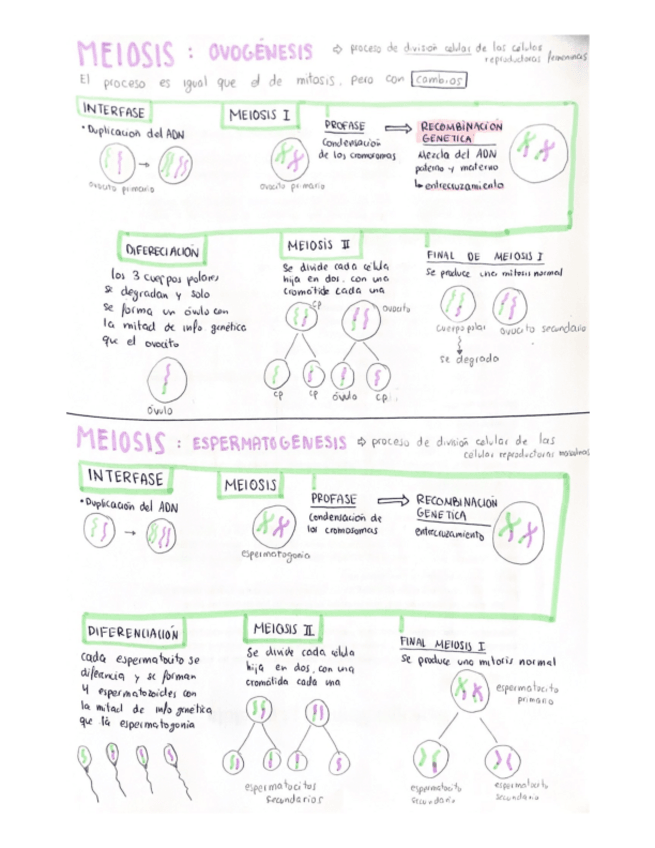 MEIOSIS : OVOGÉNESIS ⇨ proceso de división celular de las celulas
reproductoras femeninas
El proceso es igual que el de mitosis, pero con cambios
INTERFASE
• Duplicación del ADN
→
ovocito primario
MEIOSIS I
ovocito primario
PROFASE
Condensación
de los cromosomas
⇨
RECOMBINACIÓN
GENÉTICA
Mezcla del ADN
paterno y materno
↳ entrecruzamiento
DIFERECIACIÓN
los 3 cuerpos polares
se degradan y solo
se forma un óvulo con
la mitad de info genética
que el ovocito
óvulo
MEIOSIS II
Se divide cada célula
hija en dos, con una
cromátide cada una
cp
ovocito
cp
cp
óvulo
cp
FINAL DE MEIOSIS I
Se produce una mitosis normal
cuerpo polar
ovocito secundario
se degrada
MEIOSIS : ESPERMATOGENESIS ⇨ proceso de división celular de las
celulas reproductoras masculinas
INTERFASE
• Duplicación del ADN
→
MEIOSIS
espermatogonia
PROFASE
Condensación de
los cromosomas
⇨
RECOMBINACIÓN
GENETICA
entrecruzamiento
DIFERENCIACIÓN
cada espermatocito se
diferencia y se forman
4 espermatozoides con
la mitad de info genética
que la espermatogonia
MEIOSIS II
Se divide cada célula
hija en dos, con una
cromátida cada una
espermatocitos
secundarios
FINAL MEIOSIS I
Se produce una mitosis normal
espermatocito
primario
espermatocito
secundario
espermatocito
secundario